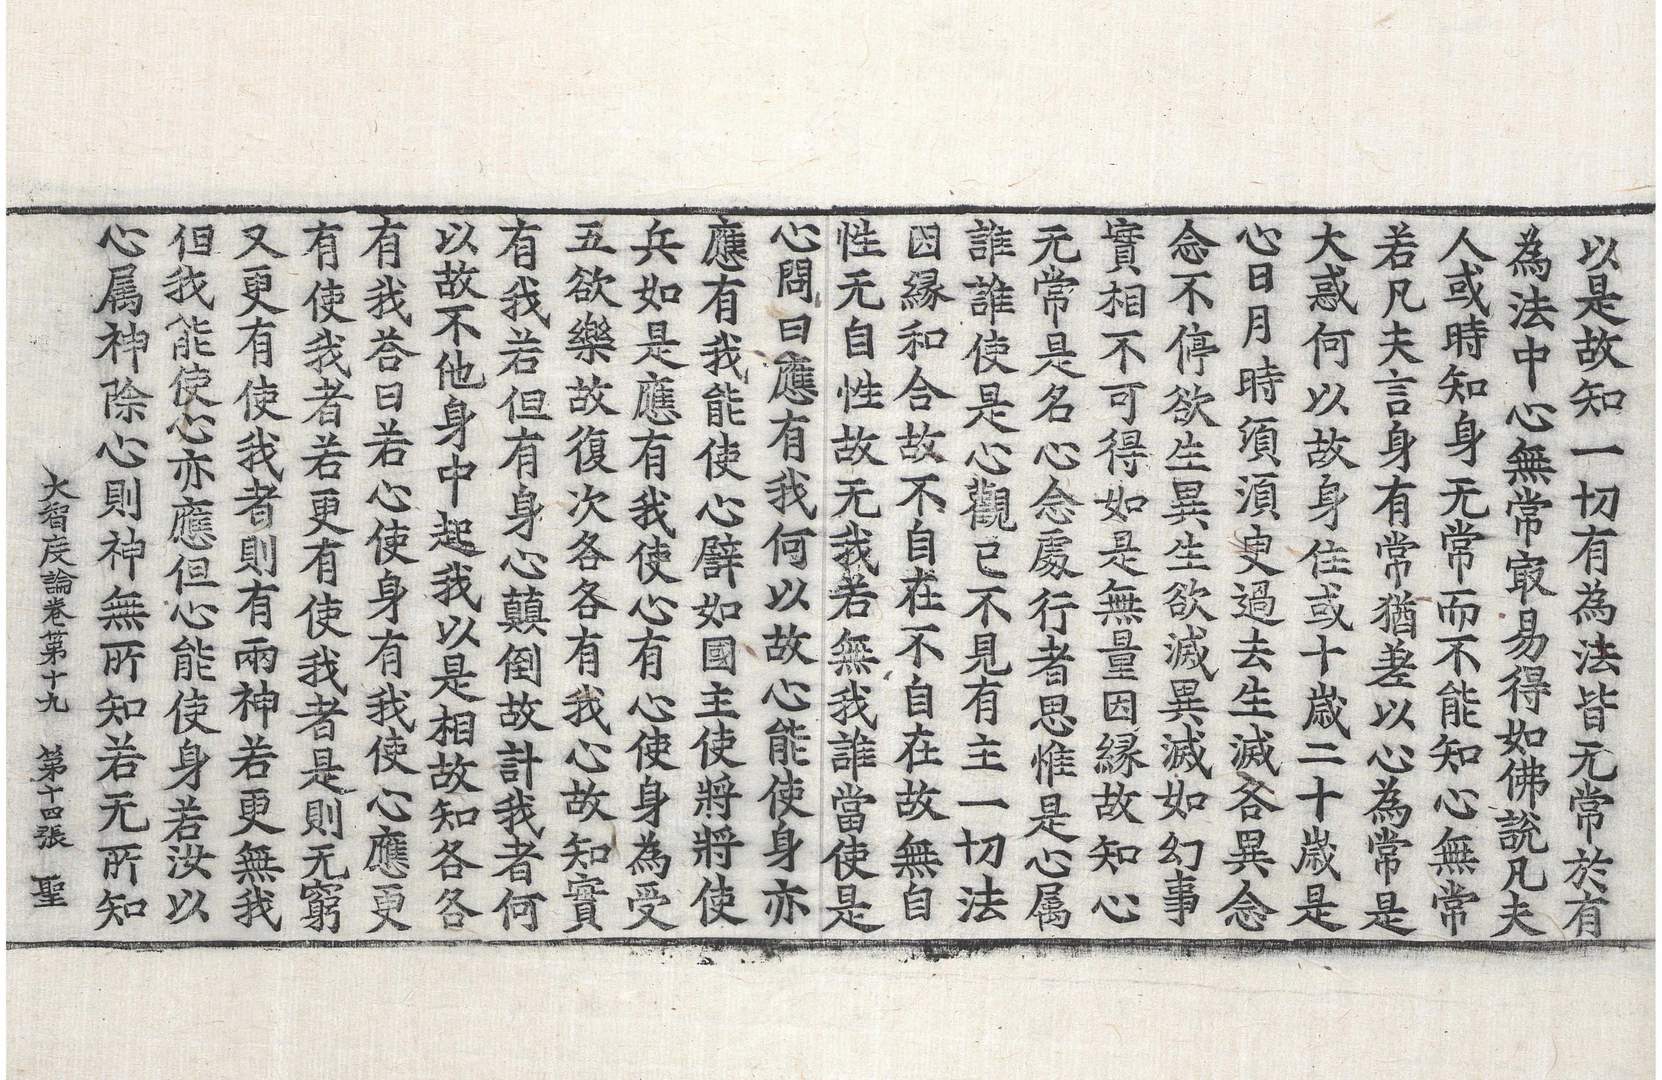 以是故知一切有為法皆无常於有
為法中心無常㝡易得如佛說凡夫
人或時知身无常而不能知心無常
若凡夫言身有常猶差以心為常是
大惑何以故身住或十歲二十歲是
心日月時湏湏㬰過去生滅各異念
念不停欲生異生欲滅異滅如幻事
實相不可得如是無量因緣故知心
无常是名心念處行者思惟是心属
誰誰使是心觀已不見有主一切法
因緣和合故不自在不自在故無自
性无自性故无我若無我誰當使是
心問曰應有我何以故心能使身亦
應有我能使心譬如國主使將將使
兵如是應有我使心有心使身為受
五欲樂故復次各各有我心故知實
有我若但有身心顛倒故計我者何
以故不他身中起我以是相故知各各
有我荅曰若心使身有我使心應更
有使我者若更有使我者是則无窮
又更有使我者則有兩神若更無我
但我能使心亦應但心能使身若汝以
心属神除心則神無所知若无所知
大智度論卷第十九 第十四張 聖